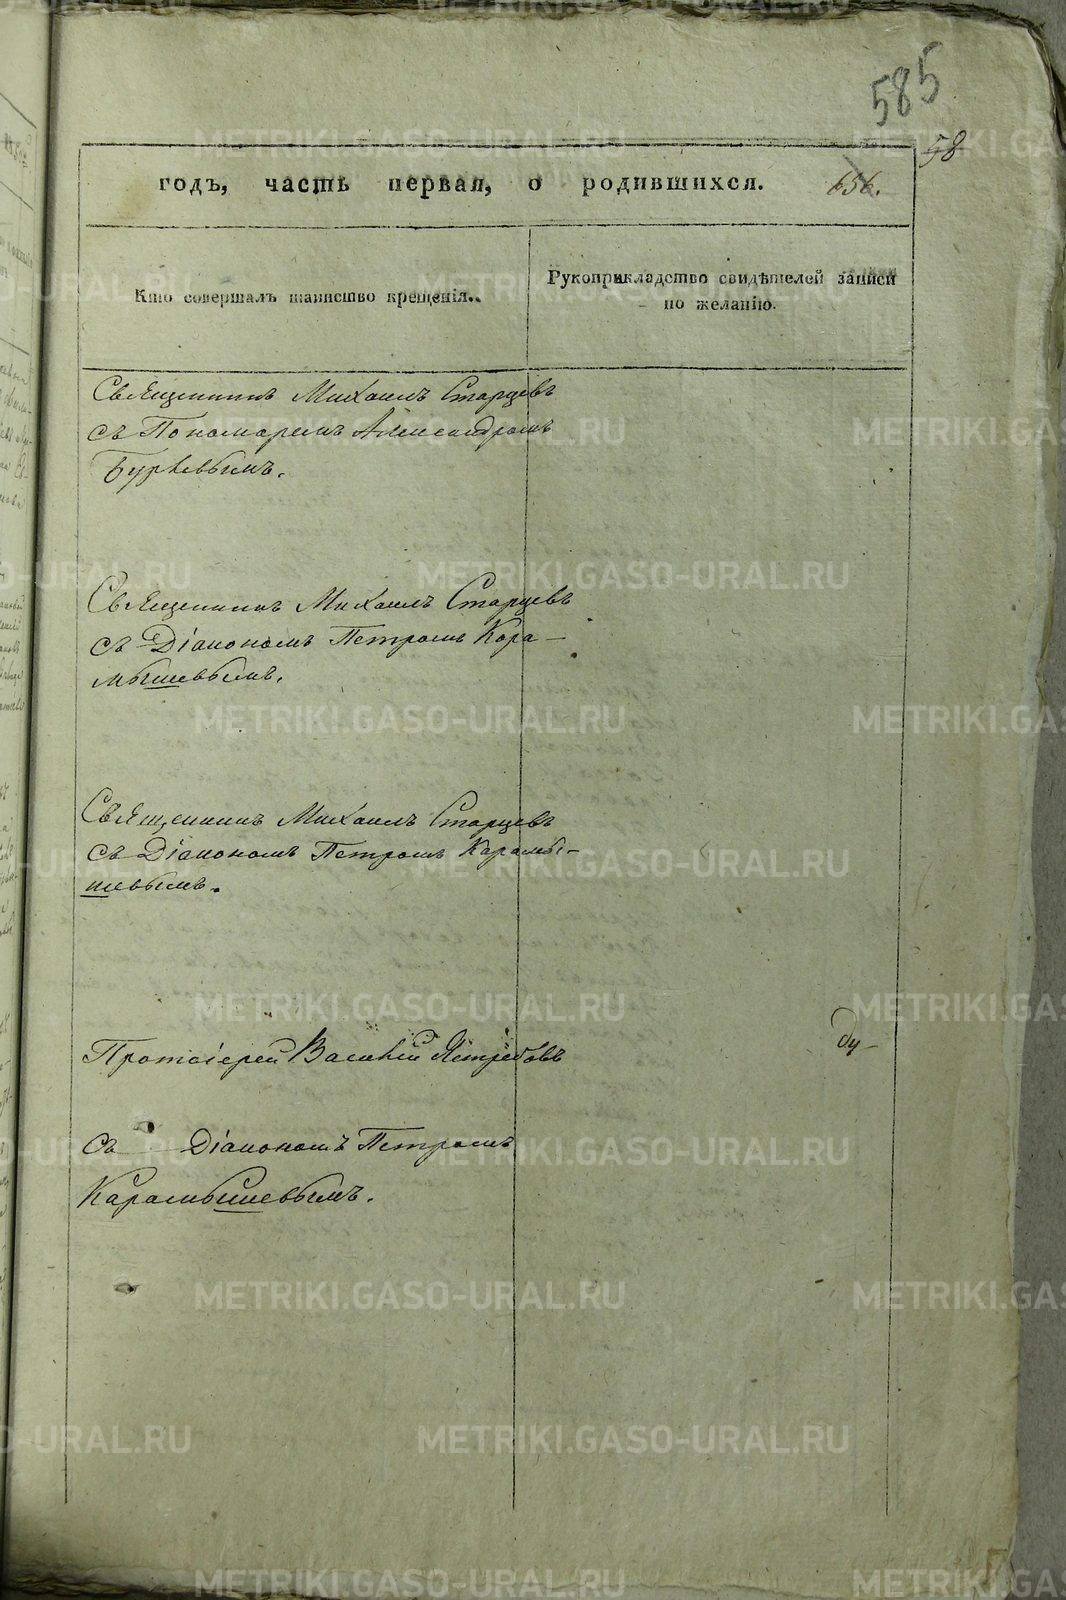 585
58
годъ, часть первая, о родившихся. 656.
Кто совершалъ таинство крещенія.
Рукоприкладство свидѣтелей записи
по желанію.
Священникъ Михаилъ Старцевъ
съ Пономаремъ Александромъ
Бурѣвымъ.
Священникъ Михаилъ Старцевъ
съ Діакономъ Петромъ Кара-
мышевымъ.
Священникъ Михаилъ Старцевъ
съ Діакономъ Петромъ Карамы-
шевымъ.
Протоіерей Василій Ястребовъ
съ Діакономъ Петромъ
Карамышевымъ.
METRIKI.GASO-URAL.RU